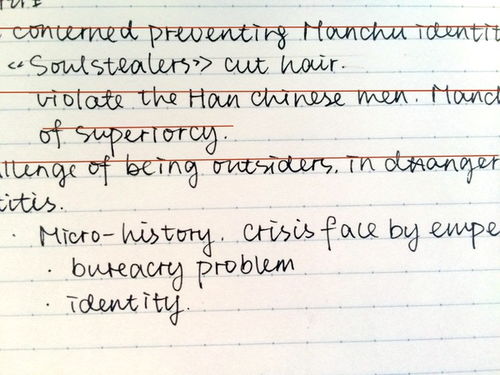 concerned preventing Manchu identit
«Soulstealers» cut hair.
violate the Han chinese men. Mand
of superiorcy.
llenge of being outsiders. in danger
titis.
· Micro-history. crisis face by empe
· bureacry problem
· identity.